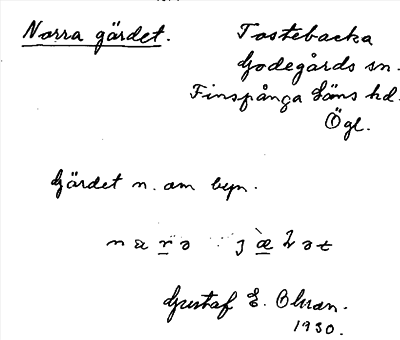 Norra gärdet.
Tostebacka
Godegårds sn.
Finspånga Läns hd.
Ögl.
Gärdet n. om byn.
Gustaf E. Ohman.
1930.